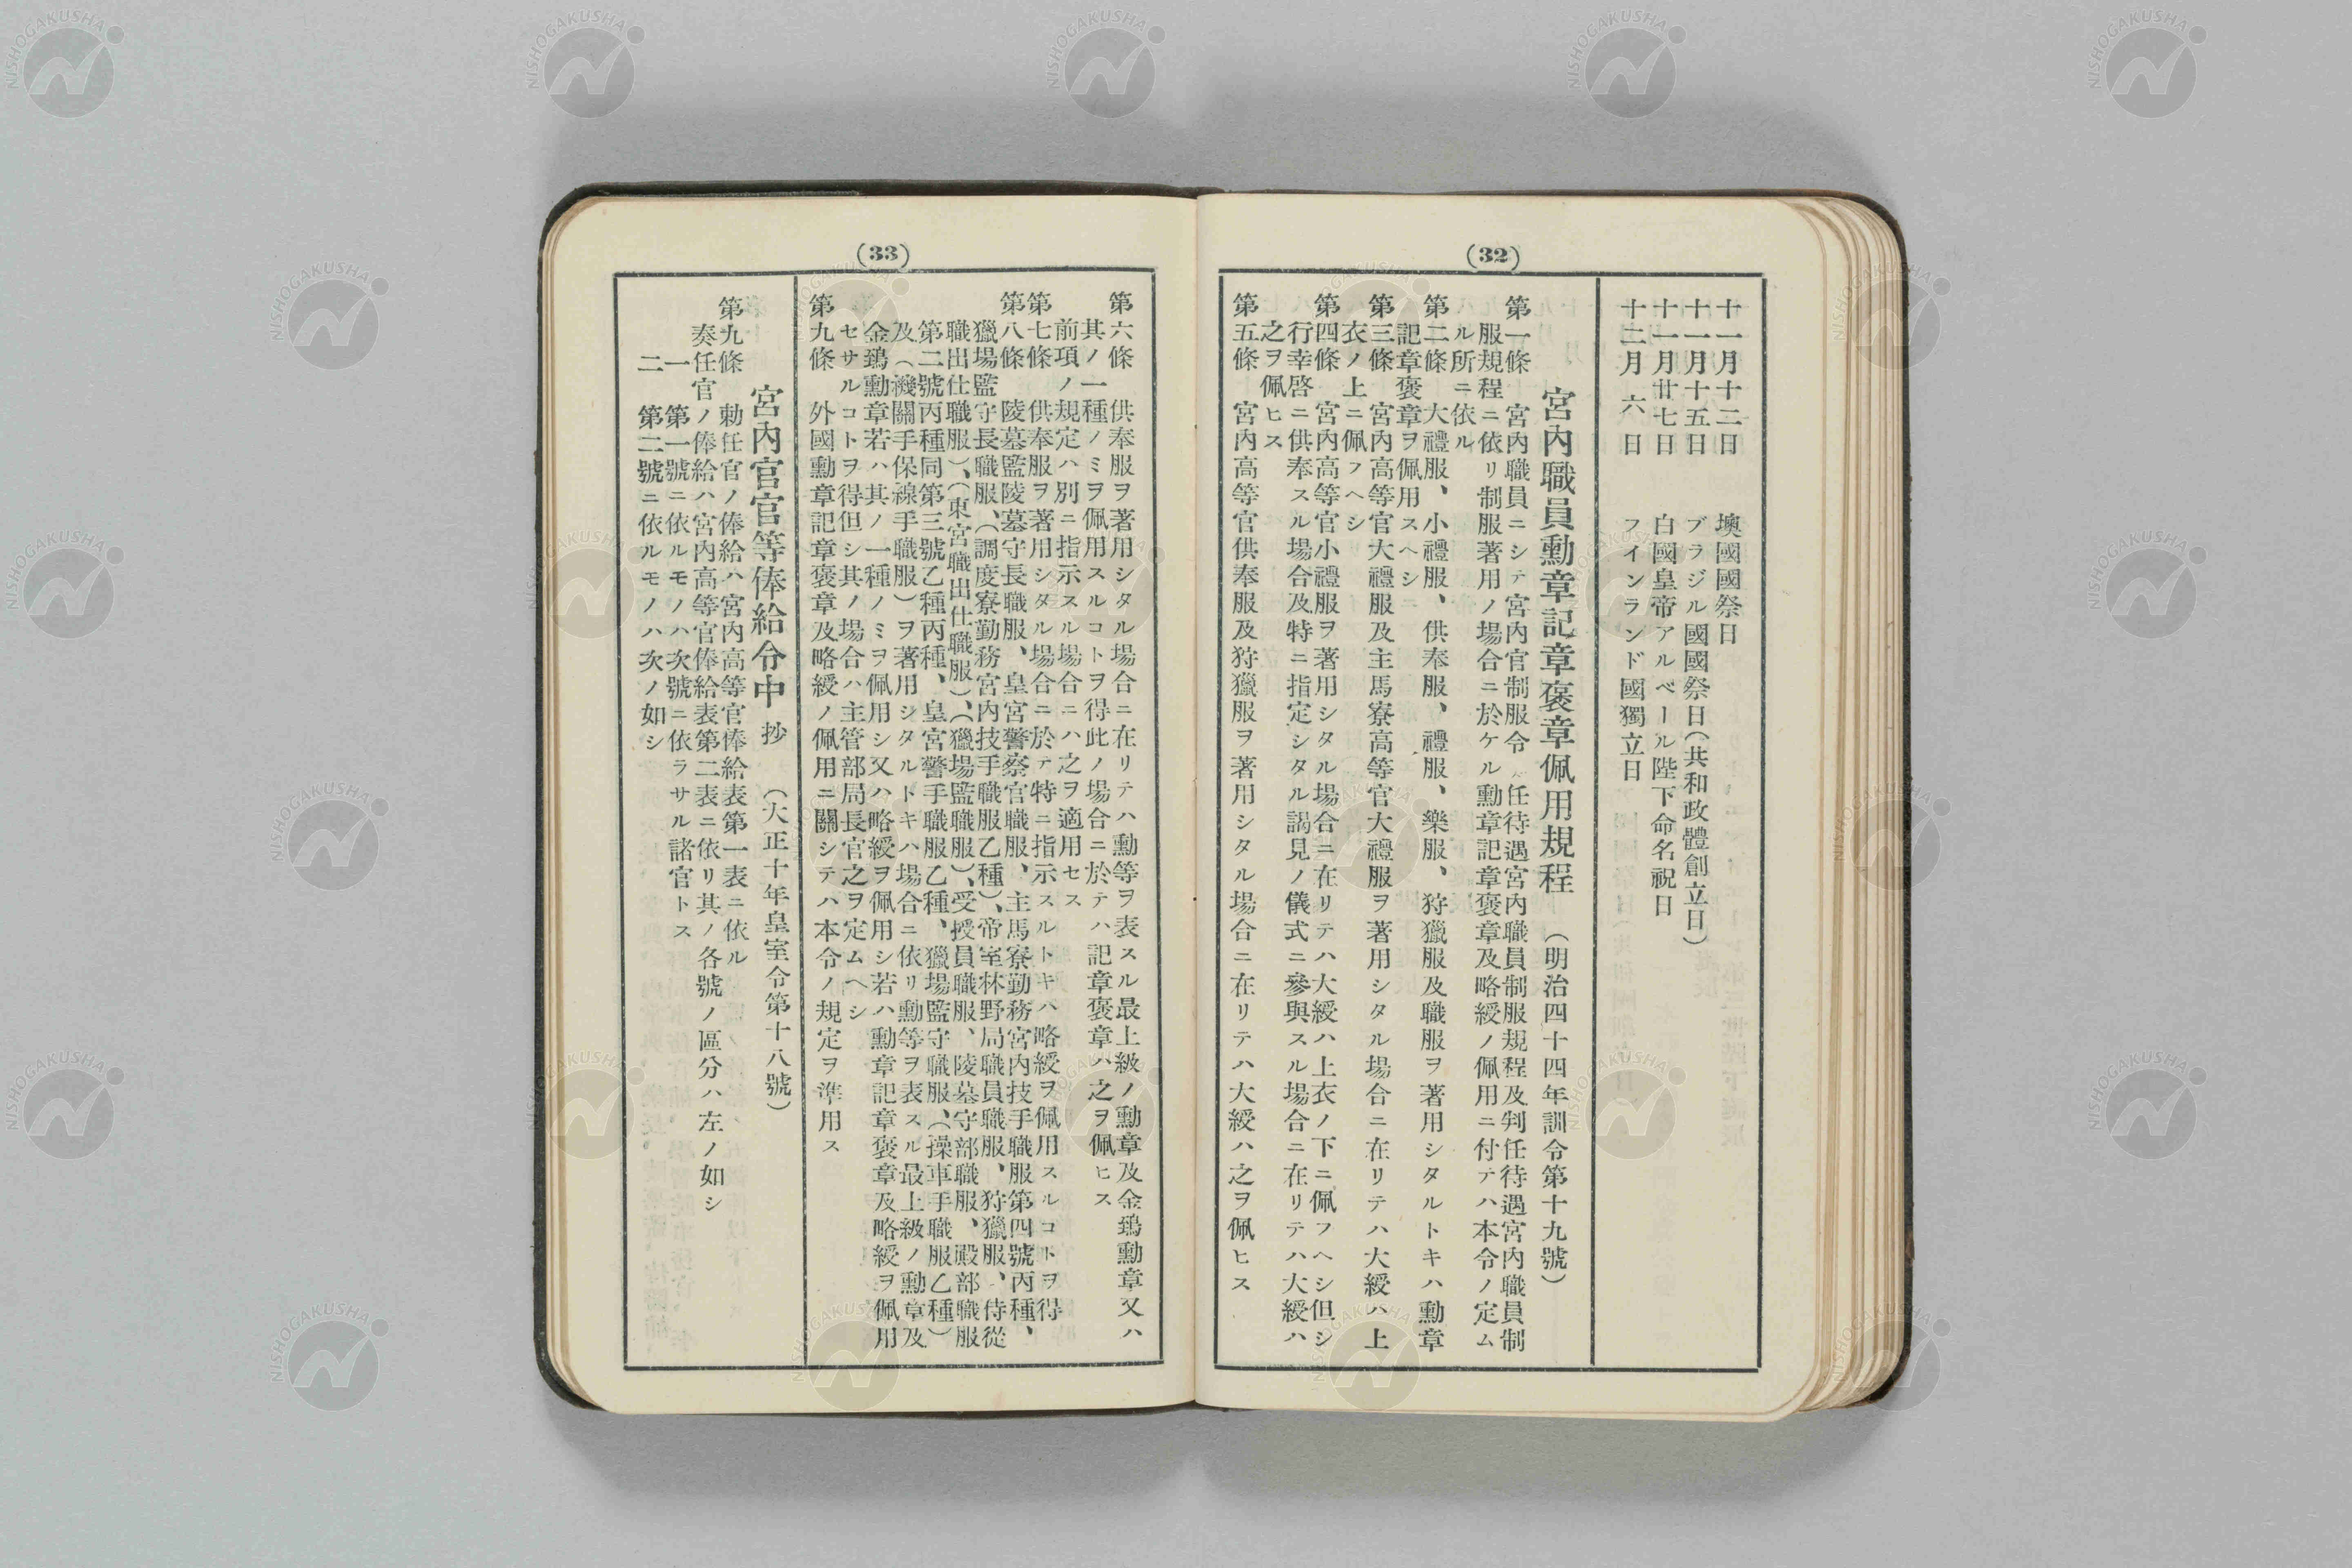 (32)
十一月十二日 墺國國祭日
十一月十五日 ブラジル國國祭日(共和政體創立日)
十一月廿七日 白國皇帝アルベール陛下命名祝日
十二月六日 フインランド國獨立日
宮內職員勳章記章褒章佩用規程 (明治四十四年訓令第十九號)
第一條 宮內職員ニシテ宮內官制服令 任待遇宮內職員制服規程及判任待遇宮內職員制
服規程ニ依リ制服著用ノ場合ニ於ケル勳章記章褒章及略綬ノ佩用ニ付テハ本令ノ定ム
ル所ニ依ル
第二條 大禮服、小禮服、供奉服、禮服、樂服、狩獵服及職服ヲ著用シタルトキハ勳章
記章褒章ヲ佩用スヘシ
第三條 宮內高等官大禮服及主馬寮高等官大禮服ヲ著用シタル場合ニ在リテハ大綬ハ上
衣ノ上ニ佩フヘシ
第四條 宮內高等官小禮服ヲ著用シタル場合ニ在リテハ大綬ハ上衣ノ下ニ佩フヘシ但シ
行幸啓ニ供奉スル場合及特ニ指定シタル謁見ノ儀式ニ參與スル場合ニ在リテハ大綬ハ
之ヲ佩ヒス
第五條 宮內高等官供奉服及狩獵服ヲ著用シタル場合ニ在リテハ大綬ハ之ヲ佩ヒス
(33)
第六條 供奉服ヲ著用シタル場合ニ在リテハ勳等ヲ表スル最上級ノ勳章及金鵄勳章又ハ
其ノ一種ノミヲ佩用スルコトヲ得此ノ場合ニ於テハ記章褒章ハ之ヲ佩ヒス
前項ノ規定ハ別ニ指示スル場合ニハ之ヲ適用セス
第七條 供奉服ヲ著用シタル場合ニ於テ特ニ指示スルトキハ略綬ヲ佩用スルコトヲ得
第八條 陵墓監陵墓守長職服、皇宮警察官職服、主馬寮勤務宮內技手職服第四號丙種、
獵場監守長職服、(調度寮勤務宮內技手職服乙種)、帝室林野局職員職服、狩獵服、侍從
職出仕職服)、(東宮職出仕職服)、(獵場監職服)、受授員職服、陵墓守部職服、殿部職服
第二號丙種同第三號乙種丙種、皇宮警手職服乙種、獵場監守職服、(操車手職服乙種)
及(機關手保線手職服)ヲ著用シタルトキハ場合ニ依リ勳等ヲ表スル最上級ノ勳章及
金鵄勳章若ハ其ノ一種ノミヲ佩用シ又ハ略綬ヲ佩用シ若ハ勳章記章褒章及略綬ヲ佩用
セサルコトヲ得但シ其ノ場合ハ主管部局長官之ヲ定ムヘシ
第九條 外國勳章記章褒章及略綬ノ佩用ニ關シテハ本令ノ規定ヲ準用ス
宮內官官等俸給令中 抄 (大正十年皇室令第十八號)
第九條 勅任官ノ俸給ハ宮內高等官俸給表第一表ニ依ル
奏任官ノ俸給ハ宮內高等官俸給表第二表ニ依リ其ノ各號ノ區分ハ左ノ如シ
一 第一號ニ依ルモノハ次號ニ依ラサル諸官トス
二 第二號ニ依ルモノハ次ノ如シ